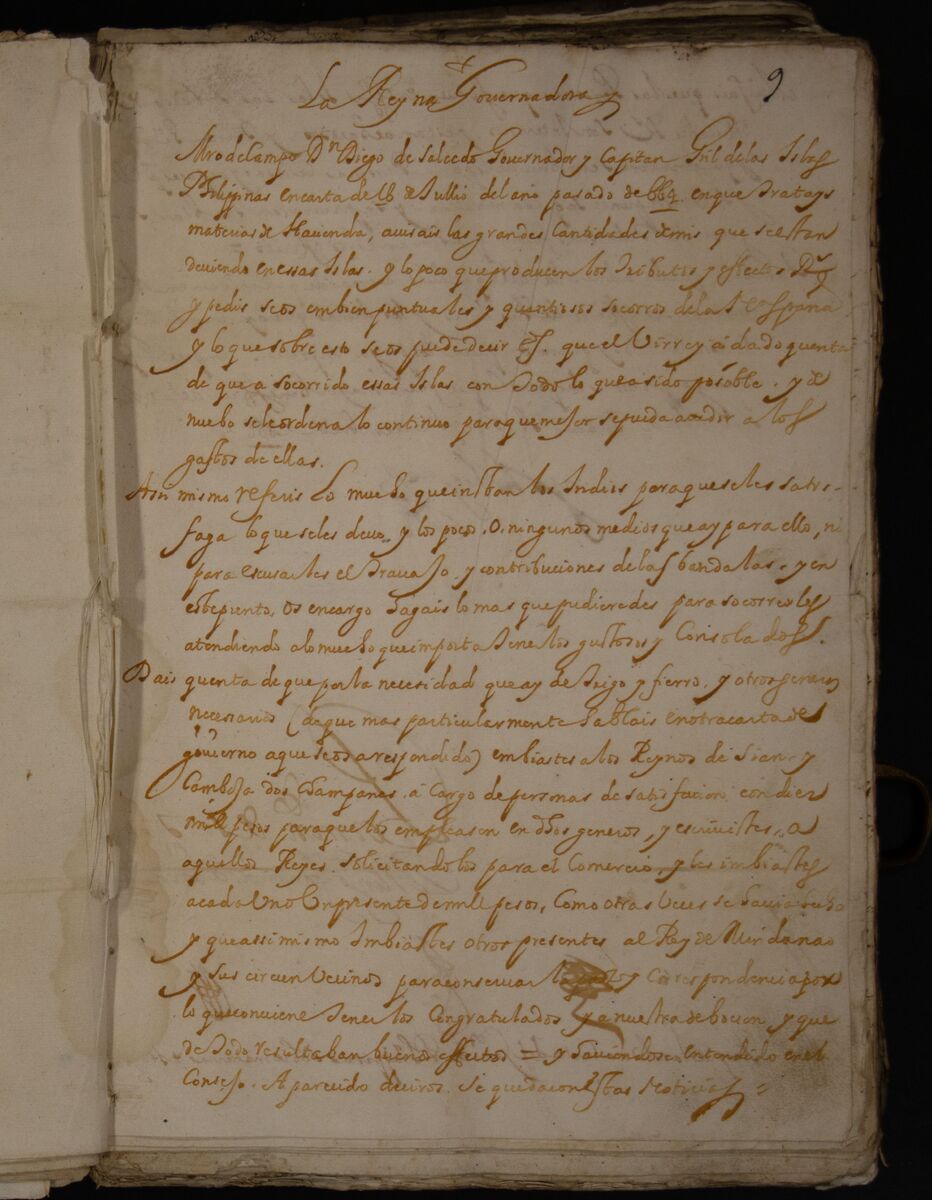 9
La Reyna Governadora
Mro de Campo Dn Diego de Salcedo Governador y Capitan Grl de las Islas
Philippinas en carta de 18 de Jullio del año pasado de 664 en que tratays
materias de Hacienda, avisais las grandes Cantidades de mrs que se estan
deviendo en essas Islas. y lo poco que producen los tributos y effectos Rs
y pedis se os embien puntuales y quantiosos socorros de la na españa
y lo que sobre esto se os puede decir es. que el Virrey á dado quenta
de que a socorrido essas Islas con todo lo que a sido posible. y de
nuebo se le ordena lo continue para que mejor se pueda acudir a los
gastos de ellas.
Asi mismo referis Lo mucho que instan los Indios para que se les satis-
faga lo que se les deve, y los pocos. O. ningunos medios que ay para ello, ni
para escusarles el travajo. y contribuciones de las bandalas. y en
este punto, Os encargo hagais lo mas que pudieredes para socorrerles
atendiendo a lo mucho que importa tenerlos gustosos y Consolados.
Dais quenta de que por la necesidad que ay de trigo y fierro. y otros generos
necesarios (de que mas particularmente hablais en otra carta de
govierno a que se os a respondido) embiastes a los Reynos de Sian y
Camboja dos Champanes. a Cargo de personas de satisfacion con diez
mill pesos para que los empleasen en dhos generos, y escrivistes, a
aquellos Reyes. solicitandolos para el Comercio. y les imbiastes
a cada Uno Un presente de mill pesos, Como otras Veces se havia hecho
y que assi mismo Imbiastes otros presentes al Rey de Mindanao
y sus circunvecinos para conservar la paz y Correspondencia por
lo que conviene tenerlos Congratulados y a nuestra debocion y que
de todo resultaban buenos effectos = y haviendose entendido en el
Consejo. A parecido deciros. Se queda con estas Noticias =